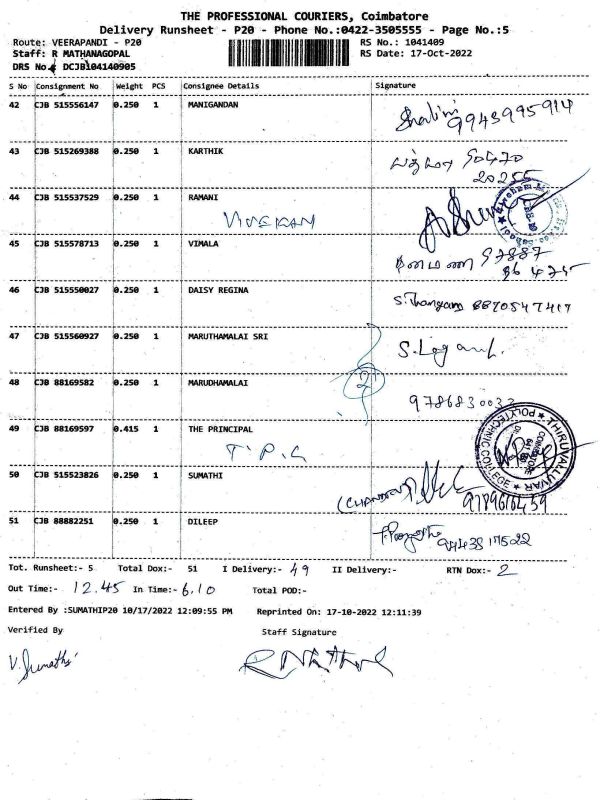 THE PROFESSIONAL COURIERS, Coimbatore
Delivery Runsheet - P20 - Phone No.:0422-3505555 - Page No.:5
Route: VEERAPANDI - P20 RS No.: 1041409
Staff: R MATHANAGOPAL RS Date: 17-Oct-2022
DRS No. DCJB104140905
S No Consignment No Weight PCS Consignee Details Signature
42 CJB 515556147 0.250 1 MANIGANDAN Shalini 9943995914
43 CJB 515269388 0.250 1 KARTHIK
20255
44 CJB 515537529 0.250 1 RAMANI
45 CJB 515578713 0.250 1 VIMALA 97887
86 475
46 CJB 515550027 0.250 1 DAISY REGINA S.Thangam 8870547417
47 CJB 515560927 0.250 1 MARUTHAMALAI SRI
48 CJB 88169582 0.250 1 MARUDHAMALAI 9786830033
49 CJB 88169597 0.415 1 THE PRINCIPAL
T.P.C
THIRUVALLUVAR POLYTECHNIC COLLEGE
50 CJB 515523826 0.250 1 SUMATHI
51 CJB 88882251 0.250 1 DILEEP
Tot. Runsheet:- 5 Total Dox:- 51 I Delivery:- 49 II Delivery:- RTN Dox:- 2
Out Time:- 12.45 In Time:- 6.10 Total POD:-
Entered By :SUMATHIP20 10/17/2022 12:09:55 PM Reprinted On: 17-10-2022 12:11:39
Verified By Staff Signature
V.Sumathi